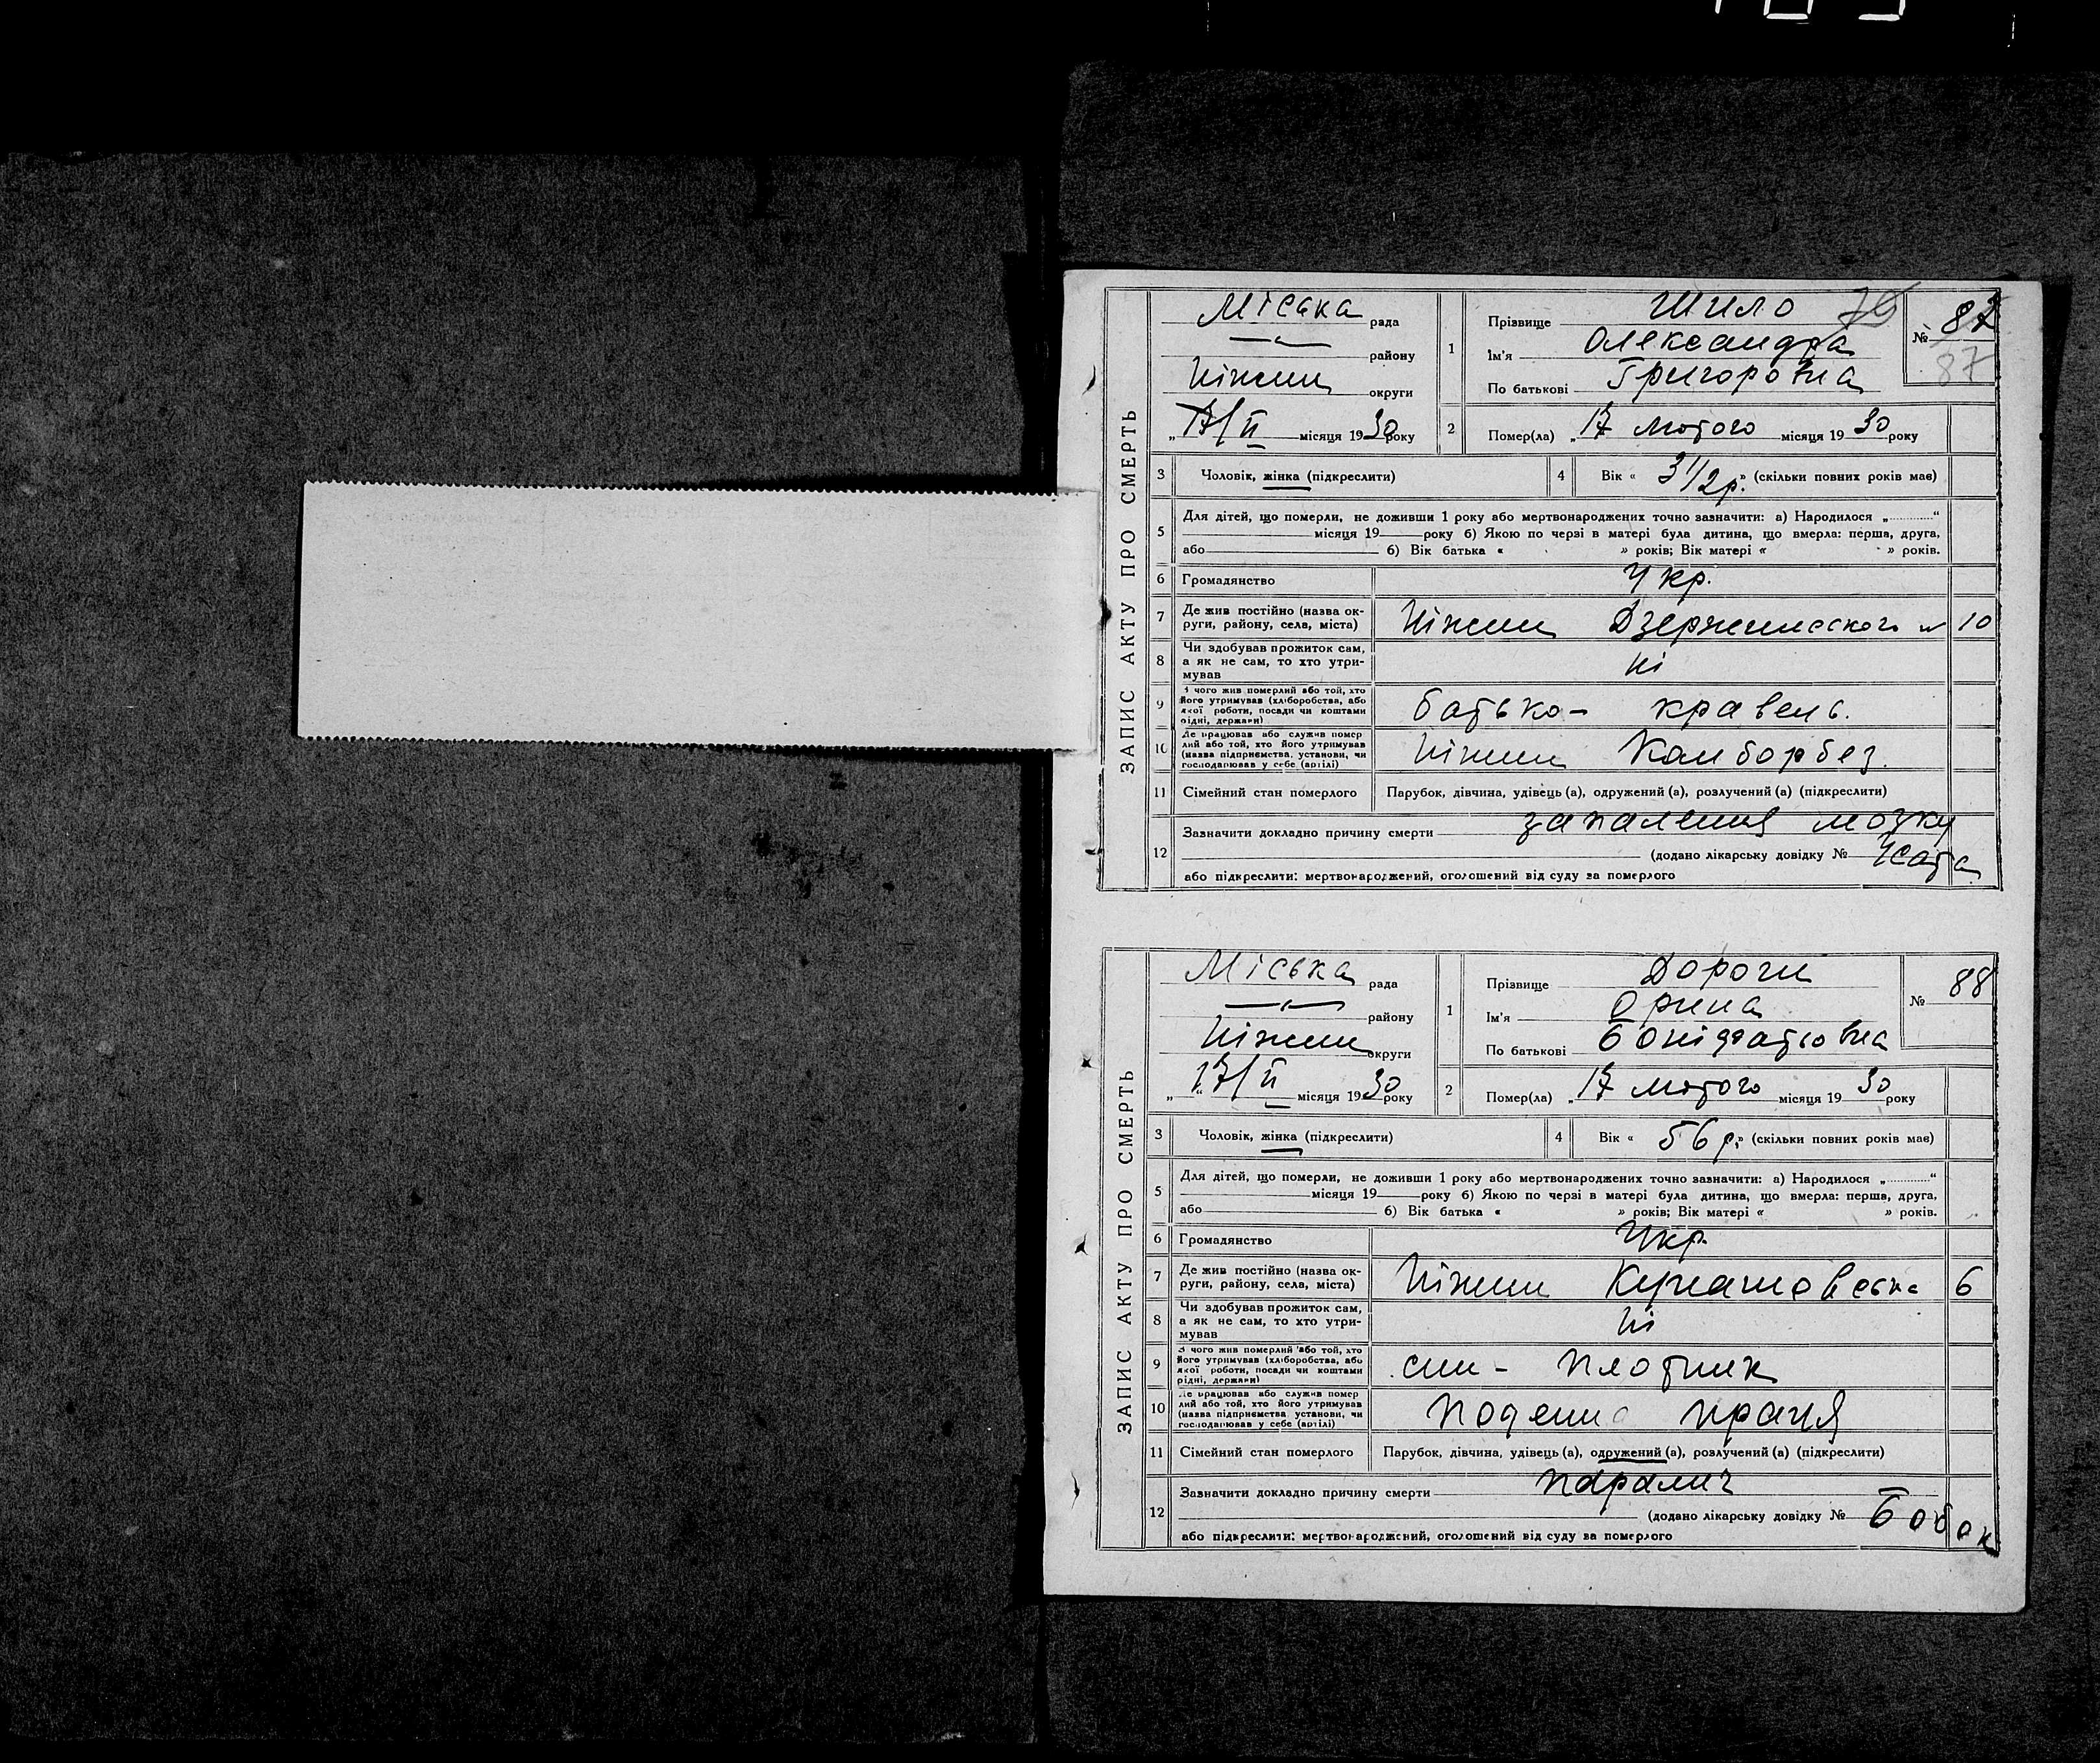 ЗАПИС АКТУ ПРО СМЕРТЬ
Міська рада
району
Ніжин округи
17/II місяця 1930 року
1 Прізвище Шило
Ім'я Олександра
По батькові Григоровна
№ 87
87
2 Помер(ла) „17 лютого місяця 1930 року
3 Чоловік, жінка (підкреслити)
4 Вік « 3 1/2 р.» (скільки повних років має)
5 Для дітей, що померли, не доживши 1 року або мертвонароджених точно зазначити: а) Народилося „ “
місяця 19 року б) Якою по черзі в матері була дитина, що вмерла: перша, друга,
або б) Вік батька « » років; Вік матері « » років.
6 Громадянство Укр.
7 Де жив постійно (назва ок-
руги, району, села, міста) Ніжин Дзержинского 10
8 Чи здобував прожиток сам,
а як не сам, то хто утри-
мував ні
9 З чого жив померлий або той, хто
його утримував (хліборобства, або
якої роботи, посади чи коштами
рідні, держави) батько - кравець.
10 Де працював або служив помер
лий або той, хто його утримував
(назва підприємства, установи, чи
господарював у себе (артілі) Ніжин Камборбез.
11 Сімейний стан померлого Парубок, дівчина, удівець (а), одружений (а), розлучений (а) (підкреслити)
12 Зазначити докладно причину смерти запалення мозку
(додано лікарську довідку №
або підкреслити: мертвонароджений, оголошений від суду за померлого
ЗАПИС АКТУ ПРО СМЕРТЬ
Міська рада
району
Ніжин округи
„17/II“ місяця 1930 року
1 Прізвище Дороги
Ім'я Орина
По батькові Боніфатьовна
№ 88
2 Помер(ла) „17 лютого місяця 1930 року
3 Чоловік, жінка (підкреслити)
4 Вік « 56 р.» (скільки повних років має)
5 Для дітей, що померли, не доживши 1 року або мертвонароджених точно зазначити: а) Народилося „ “
місяця 19 року б) Якою по черзі в матері була дитина, що вмерла: перша, друга,
або б) Вік батька « » років; Вік матері « » років.
6 Громадянство Укр.
7 Де жив постійно (назва ок-
руги, району, села, міста) Ніжин Кунашовська 6
8 Чи здобував прожиток сам,
а як не сам, то хто утри-
мував ні
9 З чого жив померлий або той, хто
його утримував (хліборобства, або
якої роботи, посади чи коштами
рідні, держави) син - плотник
10 Де працював або служив помер
лий або той, хто його утримував
(назва підприємства, установи, чи
господарював у себе (артілі) поденна праця
11 Сімейний стан померлого Парубок, дівчина, удівець (а), одружений (а), розлучений (а) (підкреслити)
12 Зазначити докладно причину смерти параліч
(додано лікарську довідку № Бобок
або підкреслити: мертвонароджений, оголошений від суду за померлого